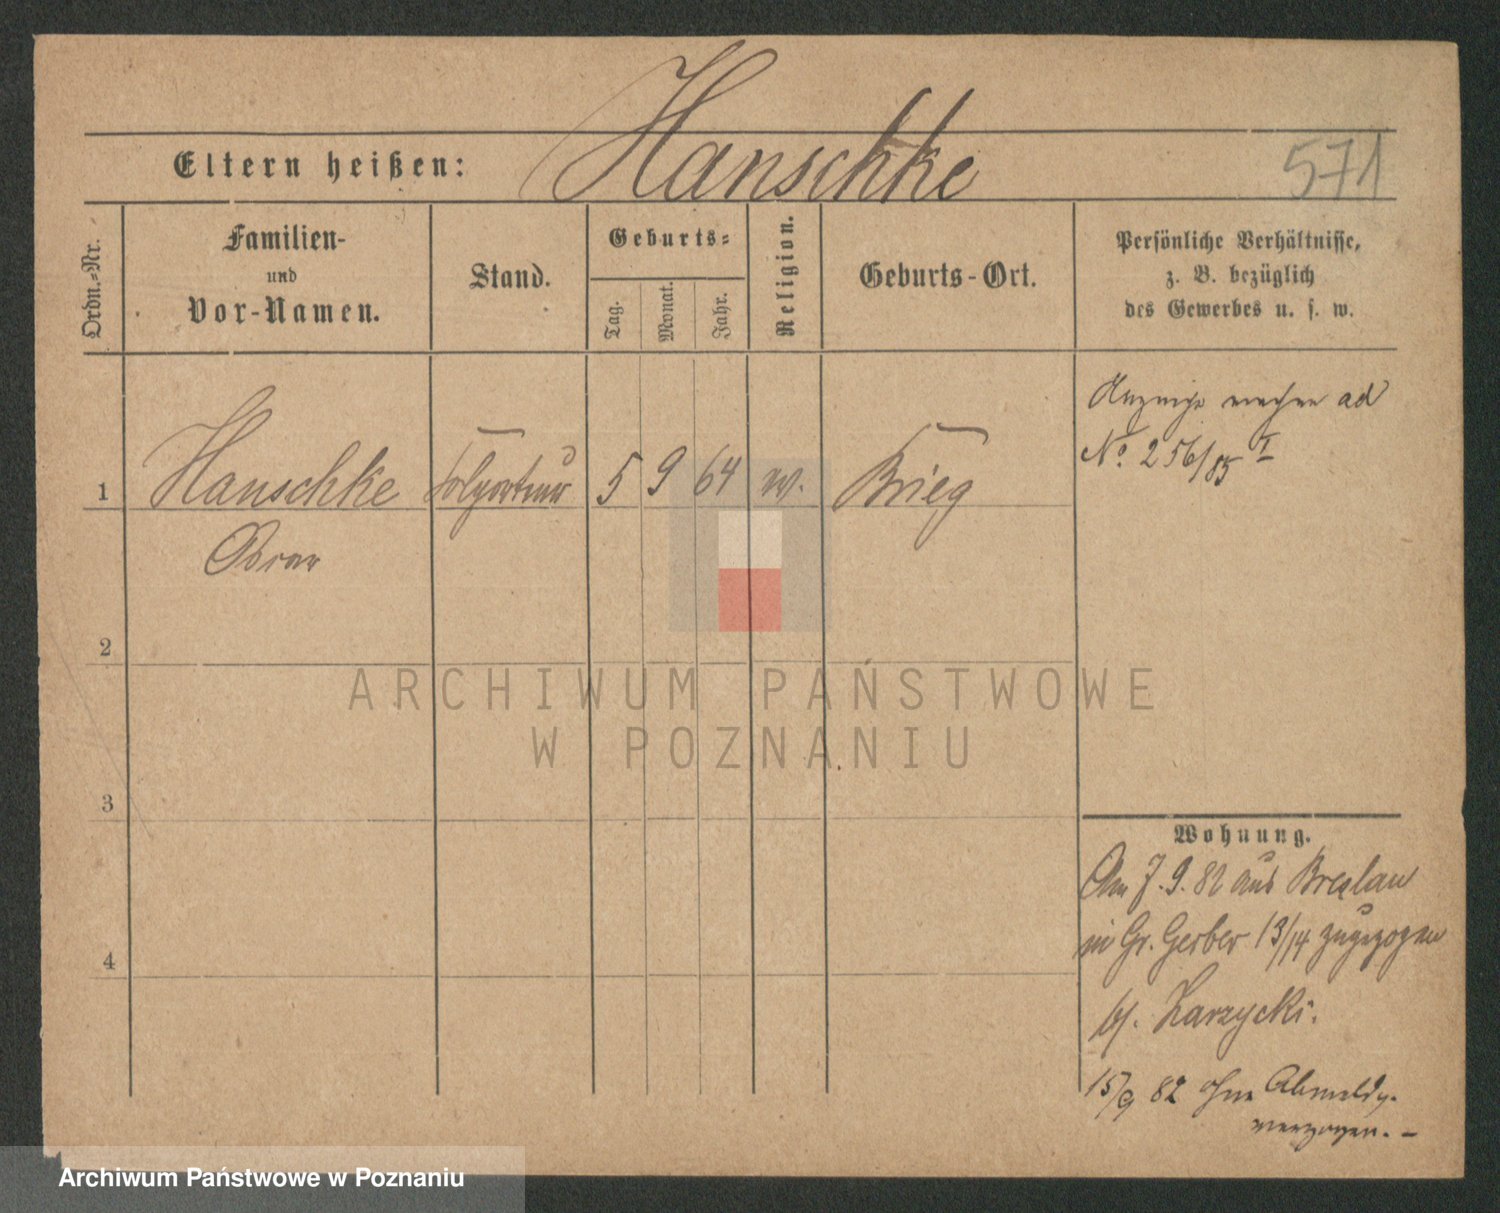 Hanschke
Eltern heißen:
571
Ordn.-Nr.
Familien-
und
Vor-Namen.
Stand.
Geburts-
Tag.
Monat.
Jahr.
Religion.
Geburts-Ort.
Persönliche Verhältnisse,
z. B. bezüglich
des Gewerbes u. s. w.
1
Hanschke
5
9
64
Brieg
Oscar
Anzeige machen ad
No. 256/85 I
2
3
4
Wohnung.
Am 7.9.82 aus Breslau
in Gr. Gerber 13/14 zugezogen
b/. Zarzycki.
15/9 82 ohne Abmeldg.
verzogen. –
ARCHIWUM PAŃSTWOWE
W POZNANIU
Archiwum Państwowe w Poznaniu